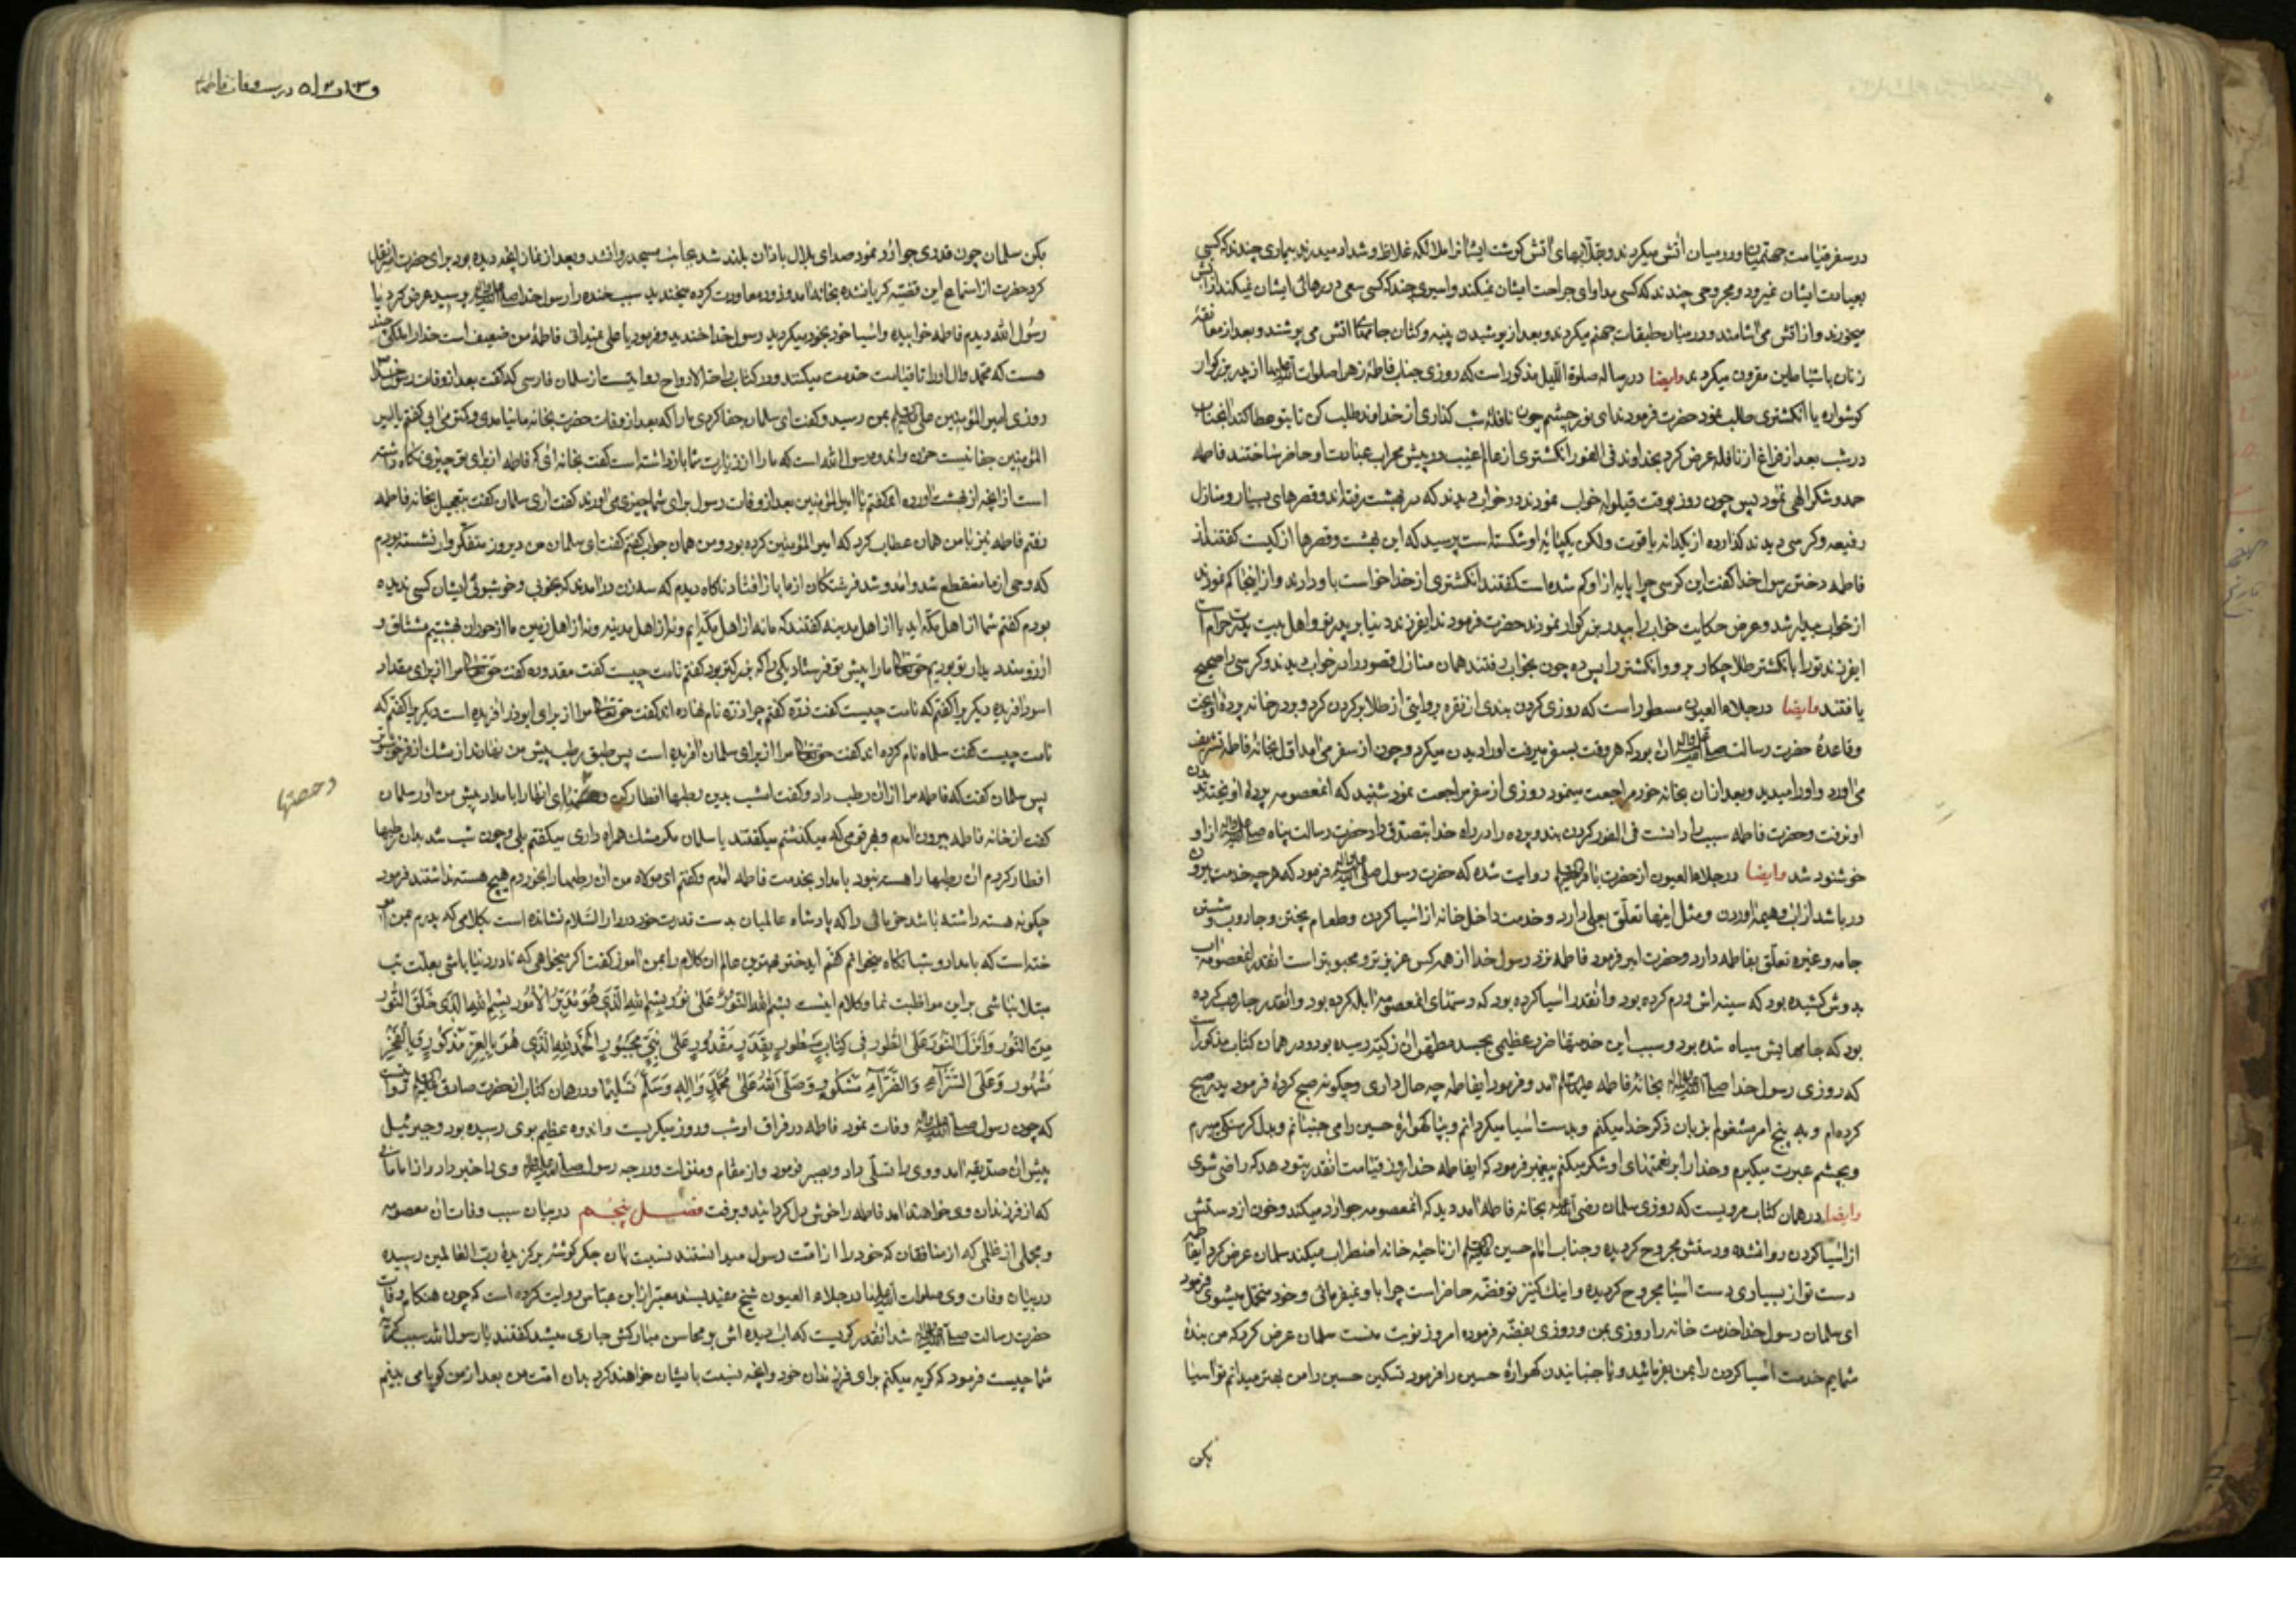 در سفر قیامت جهنمیان او در میان آتش میکردند و قلابهای آتش گوشت ایشانرا ملائکه غلاظ و شداد میدرند بیماری چندند که کسی
بعیادت ایشان نمیرود و مجروحی چندند که کسی مداوای جراحت ایشان نمیکند و اسیری چند که کسی سعی در رهائی ایشان نمیکند از آتش
میخورند و از آتش می آشامند و در میان طبقات جهنم میگردند و بعد از پوشیدن پنبه و کتان جامهای آتش می پوشند و بعد از معانقهٔ
زنان با شیاطین مقرون میگردند وایضا در رساله صلوة اللیل مذکور است که روزی جناب فاطمهٔ زهرا صلوات الله علیها از پدر بزرگوار
گوشواره یا انگشتری طلب نمود حضرت فرمودند ای نور چشم چون نافلهٔ شب گذاری از خداوند طلب کن تا بتو عطا کند انجناب
در شب بعد از فراغ از نافله عرض کرد بخداوند فی الفور انگشتری از عالم غیب در پیش محراب عبادت او حاضر ساختند فاطمه
حمد و شکر الهی نمود پس چون روز بوقت قیلوله خواب نمودند در خواب دیدند که در بهشت رفته اند و قصرهای بسیار و منازل
رفیعه و کرسی دیدند گذارده از یکدانه یاقوت ولکن یکپایهٔ او شکسته است پرسید که این بهشت و قصرها از کیست گفتند از
فاطمه دختر رسول خدا گفت این کرسی چرا پایه از او کم شده است گفتند انگشتری از خدا خواست باو دادند و از اینجا کم نمودند
از خواب بیدار شد و عرض حکایت خواب را بپدر بزرگوار نمودند حضرت فرمودند ایفرزند دنیا بر پدر تو و اهل بیت پدرت حرام است
ایفرزند تو را با انگشتر طلا چکار برو و انگشتر را پس ده چون بخواب رفتند همان منازل قصور را در خواب دیدند و کرسی را صحیح
یافتند وایضا در جلاء العیون مسطور است که روزی گردن بندی از نقره بروایتی از طلا بر گردن کرد و بر در خانه پردهٔ آویخت
وقاعدهٔ حضرت رسالت صلی الله علیه وآله آن بود که هر وقت بسفر میرفت او را دیدن میکرد و چون از سفر می آمد اول بخانهٔ فاطمه تشریف
می آورد و او را میدید و بعد از آن بخانه خود مراجعت مینمود روزی از سفر مراجعت نمود شنید که انمعصومه پردهٔ آویخته بدیدن
او نرفت و حضرت فاطمه سبب را دانست فی الفور گردن بند و پرده را در راه خدا بتصدق داد حضرت رسالت پناه صلی الله علیه وآله از او
خوشنود شد وایضا در جلاء العیون از حضرت باقر علیه السلام روایت شده که حضرت رسول صلی الله علیه وآله فرمود که هرچه خدمت بیرون
در باشد از آب و هیمه آوردن و مثل اینها تعلق بعلی دارد و خدمت داخل خانه از آسیا کردن و طعام پختن و جاروب و شستن
جامه و غیره تعلق بفاطمه دارد و حضرت امیر فرمود فاطمه نزد رسول خدا از همه کس عزیزتر و محبوبتر است انقدر انمعصومه آب
بدوش کشیده بود که سینه اش ورم کرده بود و انقدر آسیا کرده بود که دستهای انمعصومه آبله کرده بود و انقدر جاروب کرده
بود که جامهایش سیاه شده بود و بسبب این خدمتها ضرر عظیمی بجسد مطهر آن زکیه رسیده بود و در همان کتاب مذکور است
که روزی رسول خدا صلی الله علیه وآله بخانهٔ فاطمه علیها السلام آمد و فرمود ایفاطمه چه حال داری و چگونه صبح کردهٔ فرمود پدر صبح
کرده ام و به پنج امر مشغولم بزبان ذکر خدا میکنم و بدست آسیا میگردانم و بپا گهوارهٔ حسین را می جنبانم و بدل گرسنگی میبرم
و بچشم عبرت میگیرم و خدا را بر نعمتهای او شکر میکنم پیغمبر فرمود که ایفاطمه خدا روز قیامت انقدر بتو دهد که راضی شوی
وایضا در همان کتاب مرویست که روزی سلمان رضی الله عنه بخانهٔ فاطمه آمد دید که انمعصومه جو آرد میکند و خون از دستش
از آسیا کردن روانشده و دستش مجروح گردیده و جناب امام حسین علیه السلام از ناحیهٔ خانه اضطراب میکند سلمان عرض کرد ایفاطمه
دست تو از بسیاری دست آسیا مجروح گردیده و اینک کنیز تو فضه حاضر است چرا باو نمیفرمائی و خود متحمل میشوی فرمود
ای سلمان رسول خدا خدمت خانه را روزی بمن و روزی بفضه فرموده امروز نوبت منست سلمان عرض کرد که من بندهٔ
شمایم خدمت آسیا کردن را بمن بفرمائید و یا جنبانیدن گهوارهٔ حسین را فرمود تسکین حسین را من بهتر میدانم تو آسیا
بکن
در سبب وفات فاطمه
بکن سلمان چون قدری جو آرد نمود صدای بلال باذان بلند شد بجانب مسجد روانشد و بعد از نماز انچه دیده بود برای حضرت امیر نقل
کرد حضرت از استماع این قضیه گریانشده بخانه آمد و زود معاودت کرده میخندید سبب خنده را رسول خدا صلی الله علیه وآله پرسید عرض کرد یا
رسول الله دیدم فاطمه خوابیده و آسیا خود بخود میگردید رسول خدا خندید و فرمود یا علی نمیدانی فاطمهٔ من ضعیف است خدا را ملکی چند
هست که محمد و آل او را تا قیامت خدمت میکنند و در کتاب راحة الارواح روایتست از سلمان فارسی که گفت بعد از وفات رسول خدا
روزی امیر المؤمنین علی علیه السلام بمن رسید و گفت ای سلمان جفا کردی ما را که بعد از وفات حضرت بخانه ما نیامدی و کمتر می آیی گفتم یا امیر
المؤمنین جفا نیست حزن و اندوه رسول الله است که ما را از زیارت شما بازداشته است گفت بخانه آی که فاطمه از برای تو چیزی نگاه داشته
است از انچه از بهشت آورده اند گفتم یا امیر المؤمنین بعد از وفات رسول برای شما چیزی می آورند گفت آری سلمان گفت بتعجیل بخانه فاطمه
رفتم فاطمه نیز با من همان عطاب کرد که امیر المؤمنین کرده بود و من همان جواب گفتم گفت ای سلمان من دیروز متفکر وار نشسته بودم
که وحی از ما منقطع شد و آمد و شد فرشتگان از ما باز افتاد ناگاه دیدم که سه زن درآمدند که بخوبی و خوشبوئی ایشان کسی ندیده
بودم گفتم شما از اهل مکه اید یا از اهل مدینه گفتند که ما نه از اهل مکه ایم و نه از اهل مدینه و نه از اهل زمین ما از حوران بهشتیم مشتاق و
آرزومند دیدار تو بودیم حقتعالی ما را پیش تو فرستاد یکی را که بزرگتر بود گفتم نامت چیست گفت مقدوده گفت حقتعالی مرا از برای مقداد
اسود آفریده دیگریرا گفتم که نامت چیست گفت ذره گفتم چرا ذره نام نهاده اند گفت حقتعالی مرا از برای ابوذر آفریده است دیگریرا گفتم که
نامت چیست گفت سلماه نام کرده اند گفت حقتعالی مرا از برای سلمان آفریده است پس طبق رطب پیش من نهادند از مشک اذفر خوشبوتر
پس سلمان گفت که فاطمه مرا از ان رطب داد و گفت امشب بدین رطبها افطار کن و خستهای انها را بامداد پیش من آور سلمان
وحصتها
گفت از خانه فاطمه بیرون آمدم و بهر قومی که میگذشتم میگفتند یا سلمان مگر مشک همراه داری میگفتم بلی و چون شب شد بدان رطبها
افطار کردم آن رطبها را هسته نبود بامداد بخدمت فاطمه آمدم و گفتم ای مولاه من ان رطبها را بخوردم هیچ هسته نداشتند فرمود
چگونه هسته داشته باشد خرمائی را که پادشاه عالمیان بدست قدرت خود در دار السلام نشانده است بکلامی که پدرم بمن آمو
خته است که بامداد و شبانگاه میخوانم گفتم ایدختر بهترین عالم ان کلام را بمن آموز گفت اگر میخواهی که تا در دنیا باشی بعلت تب
مبتلا نباشی بر این مواظبت نما و کلام اینست بسم الله النور نور علی نور بسم الله الذی هو مدبر الامور بسم الله الذی خلق النور
من النور وانزل النور علی الطور فی کتاب مسطور بقدر مقدور علی نبی محبور الحمد لله الذی هو بالعز مذکور وبالفخر
مشهور وعلی السراء والضراء مشکور وصلی الله علی محمد واله وسلم تسلیما و در همان کتاب از حضرت صادق علیه السلام روایت
که چون رسول صلی الله علیه وآله وفات نمود فاطمه در فراق او شب و روز میگریست و اندوه عظیم بوی رسیده بود و جبرئیل
پیش آن صدیقه آمد و وی را تسلی داد و بصبر فرمود و از مقام و منزلت و درجه رسول صلی الله علیه وآله وی را خبر داد و از امامانی
که از فرزندان وی خواهند آمد فاطمه را خوش دل گردانید و برفت فصل پنجم در بیان سبب وفات ان معصومه
و مجملی از ظلمی که از منافقان که خود را از امت رسول میدانستند نسبت بان جگر گوشهٔ برگزیدهٔ رب العالمین رسیده
در بیان وفات وی صلوات الله علیها در جلاء العیون شیخ مفید بسند معتبر از ابن عباس روایت کرده است که چون هنگام وفات
حضرت رسالت صلی الله علیه وآله شد انقدر گریست که آب دیده اش بر محاسن مبارکش جاری میشد گفتند یا رسول الله سبب گریهٔ
شما چیست فرمود که گریه میکنم برای فرزندان خود و انچه نسبت بایشان خواهند کرد بدان امت من بعد از من گویا می بینم